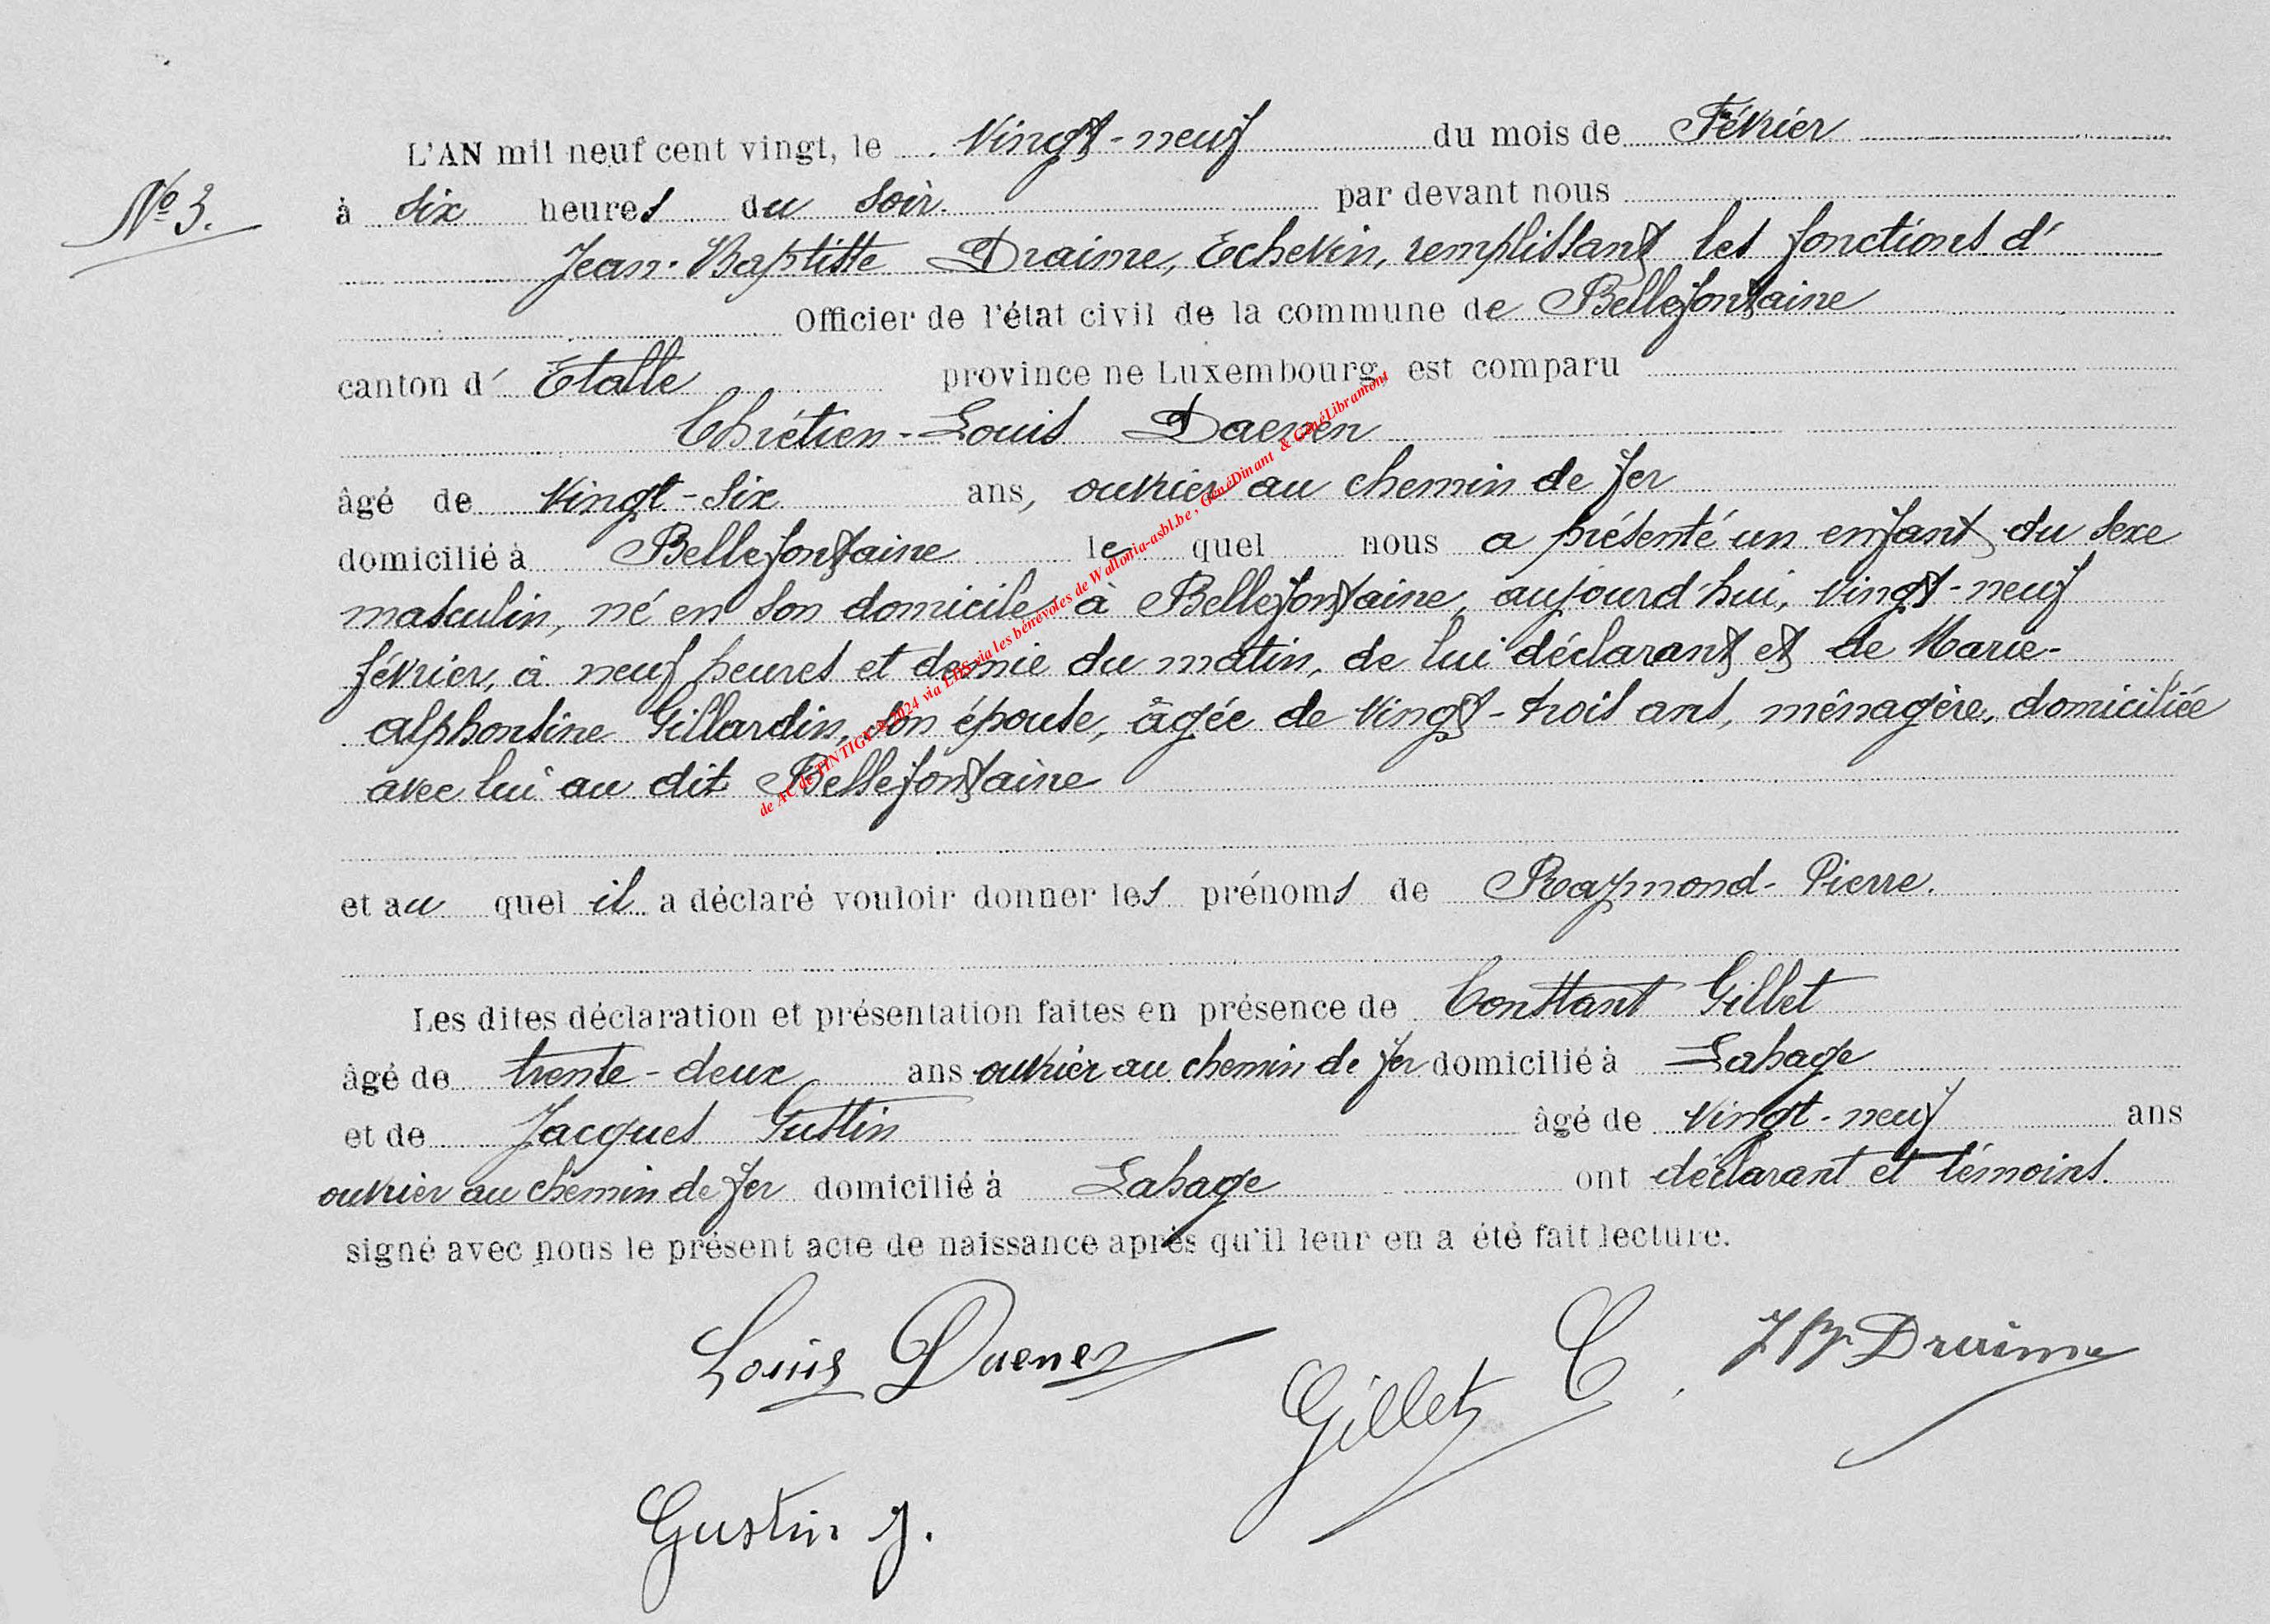 L'AN mil neuf cent vingt, le Vingt-neuf du mois de Février
N° 3.
à six heures du soir. par devant nous
Jean-Baptiste Draime, Echevin, remplissant les fonctions d'
Officier de l'état civil de la commune de Bellefontaine
canton d' Etalle province ne Luxembourg est comparu
Chrétien-Louis Daenen
âgé de vingt-six ans, ouvrier au chemin de fer
domicilié à Bellefontaine lequel nous a présenté un enfant du sexe
masculin, né en son domicile à Bellefontaine, aujourd'hui, vingt-neuf
février, à neuf heures et demie du matin, de lui déclarant et de Marie-
Alphonsine Gillardin, son épouse, âgée de vingt-trois ans, ménagère, domiciliée
avec lui au dit Bellefontaine
de AC de TINTIGNY 2024 via LDS via les bénévoles de Wallonia-asbl.be, GénéDinant & GénéLibramont
et au quel il a déclaré vouloir donner les prénoms de Raymond-Pierre.
Les dites déclaration et présentation faites en présence de Constant Gillet
âgé de trente-deux ans ouvrier au chemin de fer domicilié à Lahage
et de Jacques Gustin âgé de vingt-neuf ans
ouvrier au chemin de fer domicilié à Lahage ont déclarant et témoins.
signé avec nous le présent acte de naissance après qu'il leur en a été fait lecture.
Louis Daenen
Gillet C. JBte Draime
Gustin J.